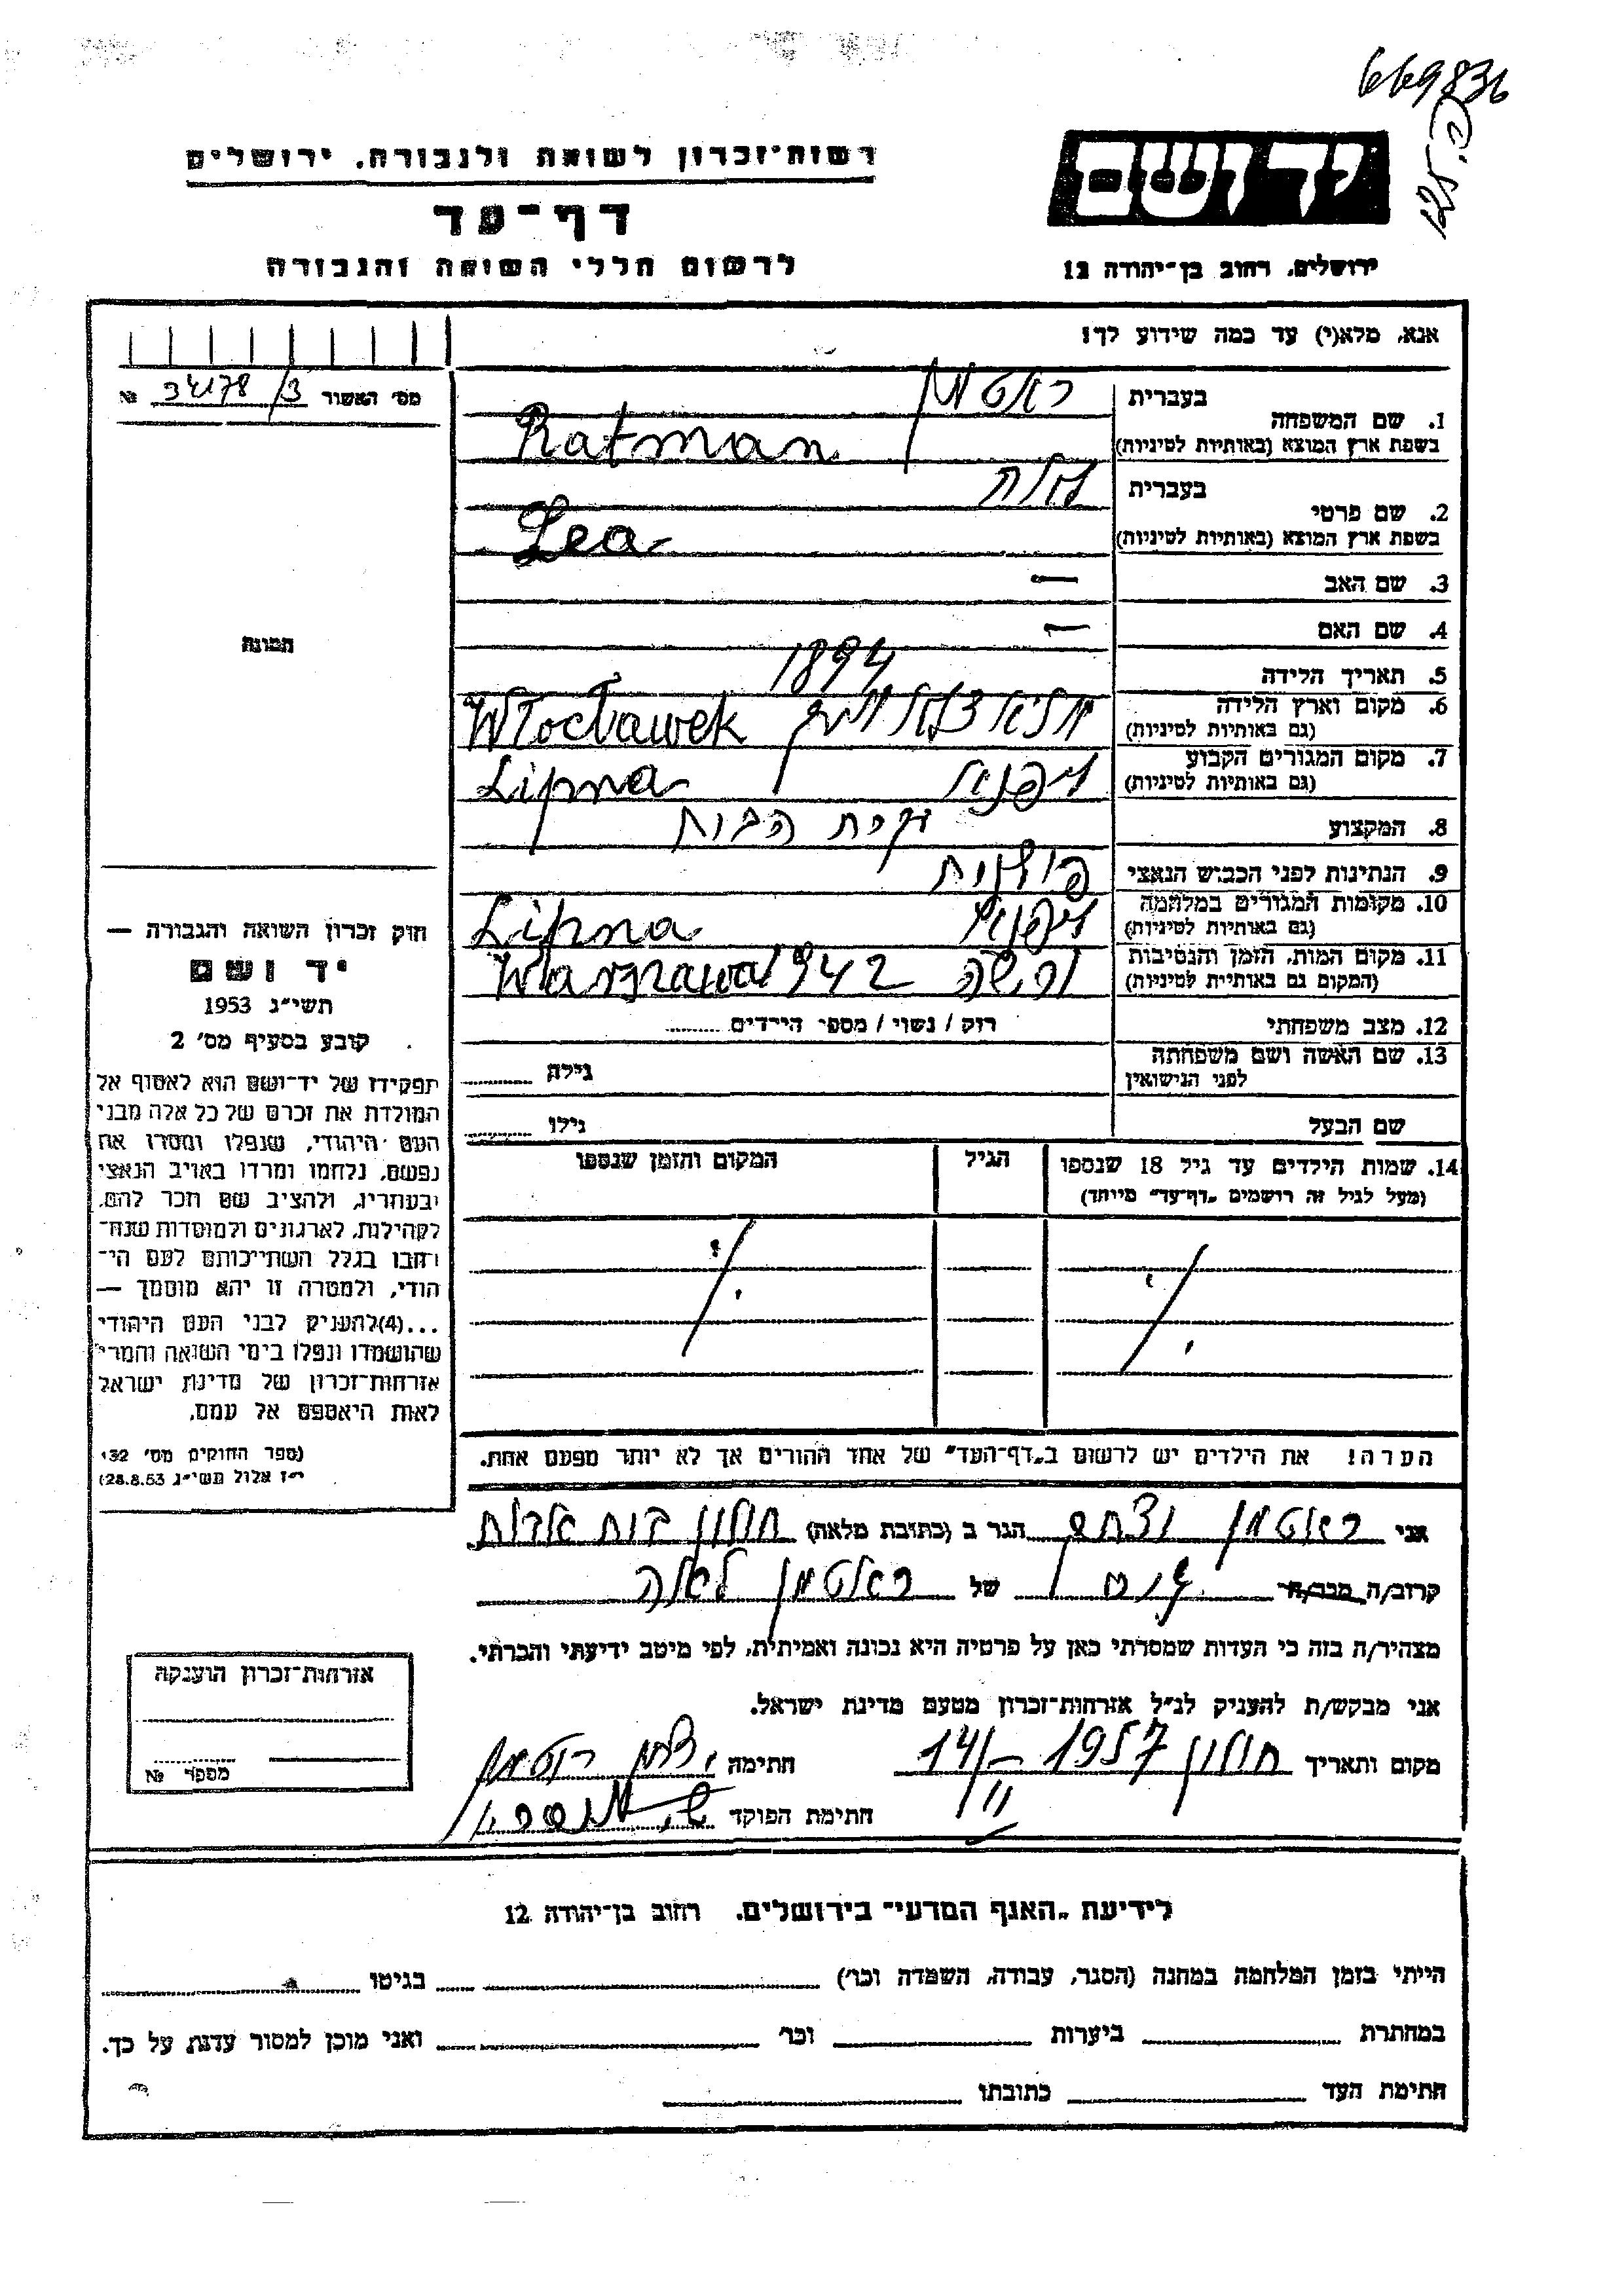 669836
רשות־זכרון לשואה ולגבורה, ירושלים
דף־עד
לרשום חללי השואה והגבורה
יד ושם
ירושלים, רחוב בן־יהודה 12
אנא, מלא(י) עד כמה שידוע לך!
מס׳ האשור 34178/3 №
1. שם המשפחה
בעברית ראטמן
בשפת ארץ המוצא (באותיות לטיניות) Ratman
2. שם פרטי
בעברית לאה
בשפת ארץ המוצא (באותיות לטיניות) Lea
3. שם האב —
4. שם האם —
התמונה
5. תאריך הלידה 1894
6. מקום וארץ הלידה
(גם באותיות לטיניות) Włocławek
7. מקום המגורים הקבוע
(גם באותיות לטיניות) ליפנו Lipna
8. המקצוע עקרת הבית
9. הנתינות לפני הכבוש הנאצי פולנית
10. מקומות המגורים במלחמה
(גם באותיות לטיניות) ליפנו Lipna
11. מקום המות, הזמן והנסיבות
(המקום גם באותיות לטיניות) ורשה Warszawa 1942
12. מצב משפחתי רוק / נשוי / מספר הילדים
13. שם האשה ושם משפחתה
לפני הנישואין גילה
שם הבעל גילו
14. שמות הילדים עד גיל 18 שנספו הגיל המקום והזמן שנספו
(מעל לגיל זה רושמים „דף־עד״ מיוחד)
הערה! את הילדים יש לרשום ב„דף־העד״ של אחד ההורים אך לא יותר מפעם אחת.
חוק זכרון השואה והגבורה —
יד ושם
תשי״ג 1953
קובע בסעיף מס׳ 2
תפקידו של יד־ושם הוא לאסוף אל
המולדת את זכרם של כל אלה מבני
העם היהודי, שנפלו ומסרו את
נפשם, נלחמו ומרדו באויב הנאצי
ובעוזריו, ולהציב שם וזכר להם,
לקהילות, לארגונים ולמוסדות שנח־
רבו בגלל השתייכותם לעם הי־
הודי, ולמטרה זו יהא מוסמך —
...(4)להעניק לבני העם היהודי
שהושמדו ונפלו בימי השואה והמרי
אזרחות־זכרון של מדינת ישראל
לאות היאספם אל עמם.
(ספר החוקים מס׳ 132
י״ז אלול תשי״ג 28.8.53)
אני ראטמן יצחק הגר ב (כתובת מלאה) חולון
קרוב/ה מכר/ה של ראטמן לאה
מצהיר/ה בזה כי העדות שמסרתי כאן על פרטיה היא נכונה ואמיתית, לפי מיטב ידיעתי והכרתי.
אני מבקש/ת להעניק לנ״ל אזרחות־זכרון מטעם מדינת ישראל.
מקום ותאריך חולון 14/II—1957 חתימה
חתימת הפוקד
אזרחות־זכרון הוענקה
מספר №
לידיעת „האגף המדעי״ בירושלים, רחוב בן־יהודה 12
הייתי בזמן המלחמה במחנה (הסגר, עבודה, השמדה וכו׳) בגיטו
במחתרת ביערות וכו׳ ואני מוכן למסור עדות על כך.
חתימת העד כתובתו